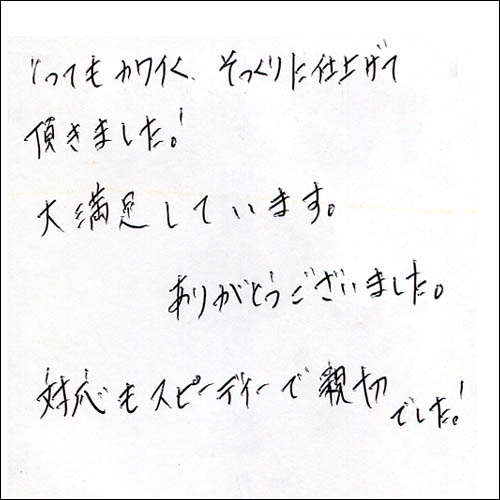 とってもカワイく、そっくりに仕上げて
頂きました!
大満足しています。
ありがとうございました。
対応もスピーディーで親切でした!